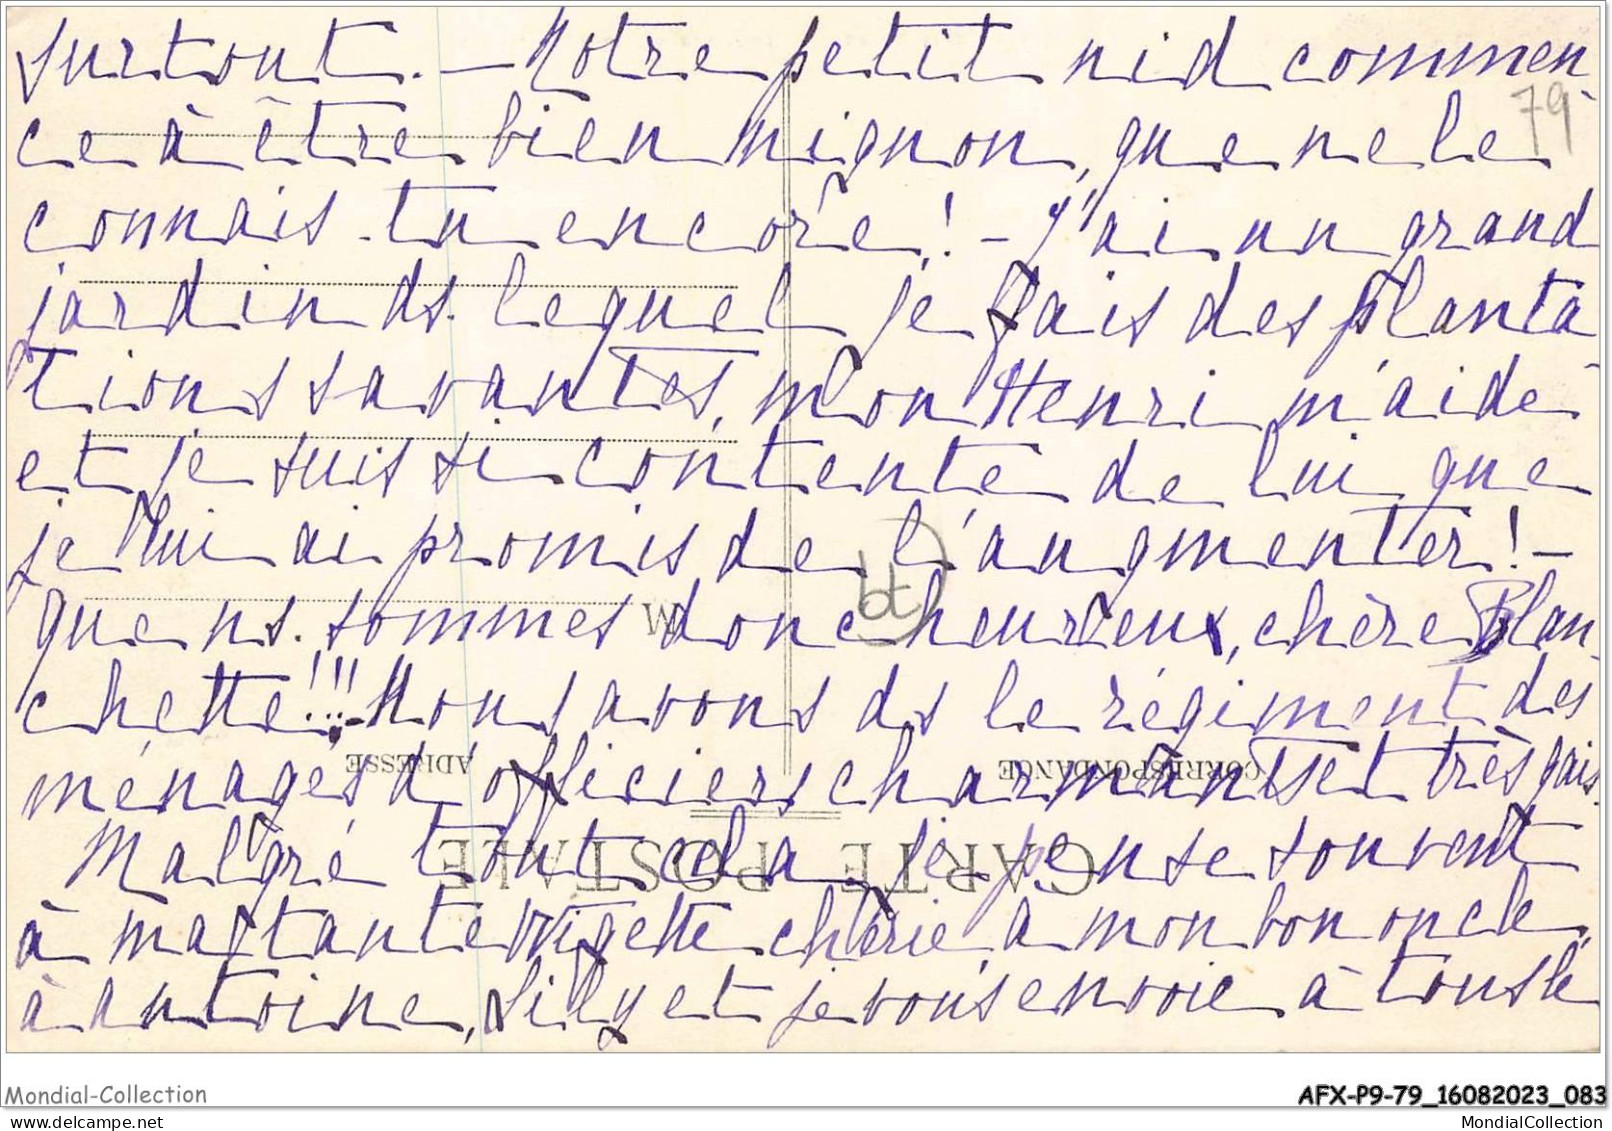 surtout. — Notre petit nid commen
79
ce à être bien mignon, que ne le
connais-tu encore! — J'ai un grand
jardin ds. lequel je fais des planta
tions savantes, mon Henri m'aide
et je suis si contente de lui que
je lui ai promis de l'augmenter! —
que ns. sommes donc heureux, chère Blan
chette!!!! — Nous avons ds le régiment des
ménages d'officiers charmants et très gais.
Malgré tout cela, je pense souvent
à ma tante Gigette chérie, à mon bon oncle,
à Antoine, Lily et je vous envoie à tous le
M
bt
ADRESSE
CORRESPONDANCE
CARTE POSTALE
Mondial-Collection
AFX-P9-79_16082023_083
www.delcampe.net
MondialCollection